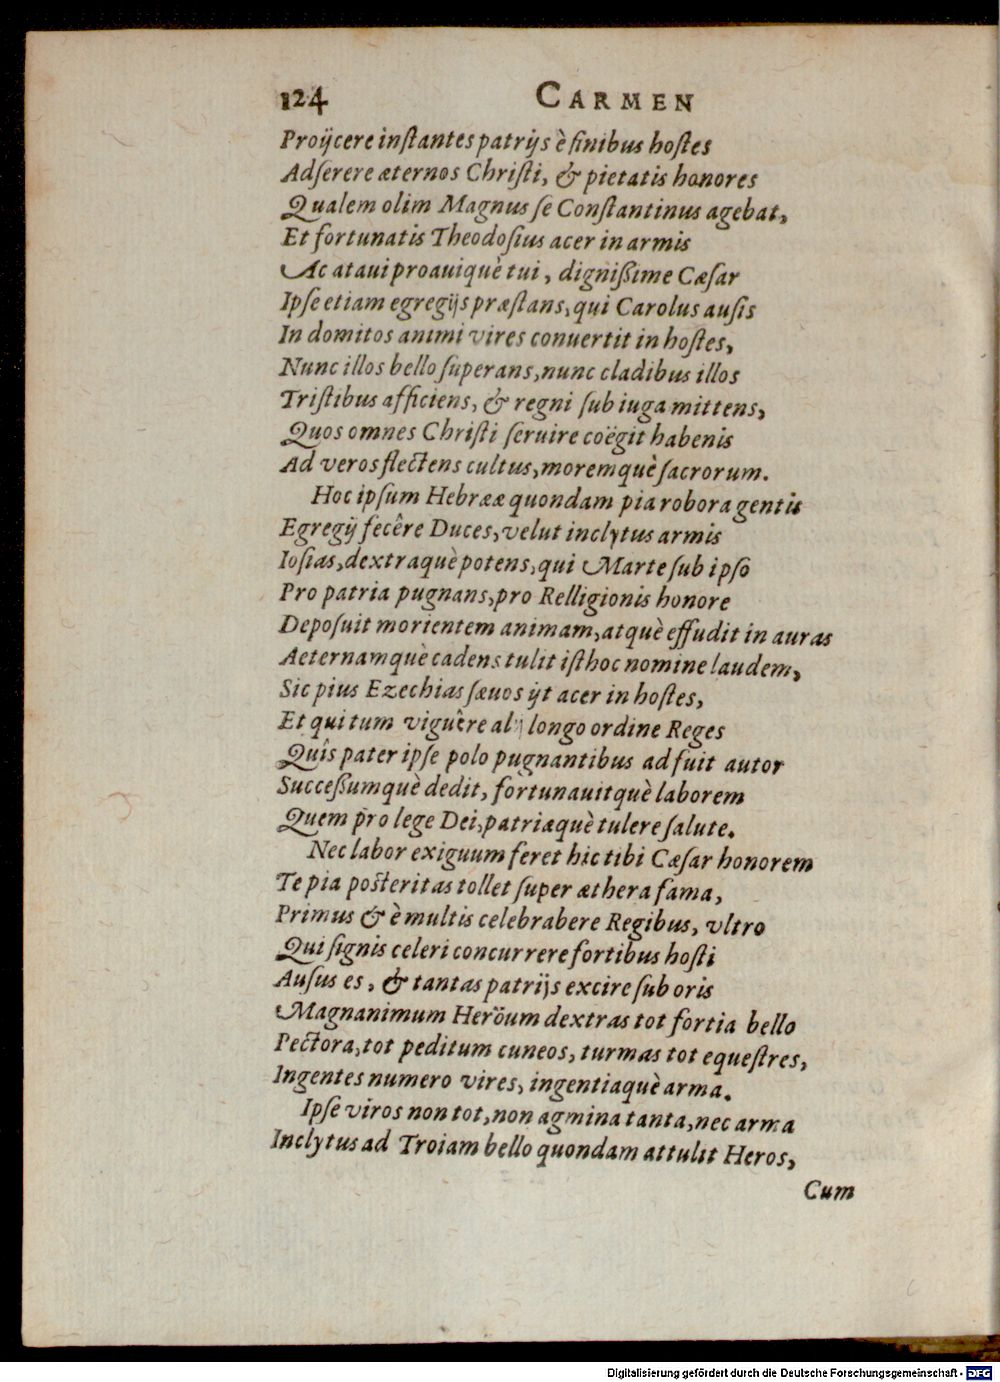 124 CARMEN
Proijcere instantes patrijs è finibus hostes
Adserere æternos Christi, & pietatis honores
Qualem olim Magnus se Constantinus agebat,
Et fortunatis Theodosius acer in armis
Ac ataui proauiquè tui, dignißime Cæsar
Ipse etiam egregijs præstans, qui Carolus ausis
In domitos animi vires conuertit in hostes,
Nunc illos bello superans, nunc cladibus illos
Tristibus afficiens, & regni sub iuga mittens,
Quos omnes Christi seruire coëgit habenis
Ad veros flectens cultus, moremquè sacrorum.
Hoc ipsum Hebrææ quondam pia robora gentis
Egregij fecêre Duces, velut inclytus armis
Iosias, dextraquè potens, qui Marte sub ipso
Pro patria pugnans, pro Relligionis honore
Deposuit morientem animam, atquè effudit in auras
Aeternamquè cadens tulit isthoc nomine laudem,
Sic pius Ezechias sæuos ijt acer in hostes,
Et qui tum viguêre alij longo ordine Reges
Quîs pater ipse polo pugnantibus adfuit autor
Succeßumquè dedit, fortunauitquè laborem
Quem pro lege Dei, patriæquè tulere salute.
Nec labor exiguum feret hic tibi Cæsar honorem
Te pia posteritas tollet super æthera fama,
Primus & è multis celebrabere Regibus, vltro
Qui signis celeri concurrere fortibus hosti
Ausus es, & tantas patrijs excire sub oris
Magnanimum Heröum dextras tot fortia bello
Pectora, tot peditum cuneos, turmas tot equestres,
Ingentes numero vires, ingentiaquè arma.
Ipse viros non tot, non agmina tanta, nec arma
Inclytus ad Troiam bello quondam attulit Heros,
Cum
Digitalisierung gefördert durch die Deutsche Forschungsgemeinschaft - DFG